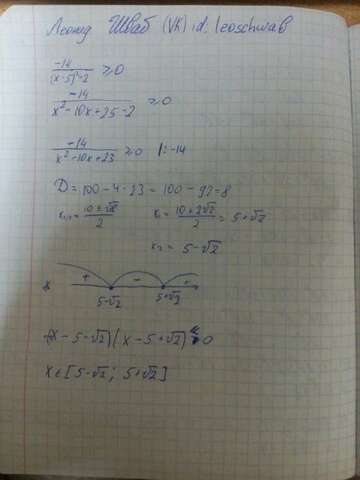 Леонид Шваб (VK) id: leoschwab
-14/(x-5)²-2 ≥ 0
-14/x²-10x+25-2 ≥ 0
-14/x²-10x+23 ≥ 0 |:-14
D = 100-4·23 = 100-92 = 8
x₁ = 10+2√2/2 = 5+√2
x₂ = 5-√2
+ - +
5-√2 5+√2
(x-5-√2)(x-5+√2) 0
x∈[5-√2; 5+√2]